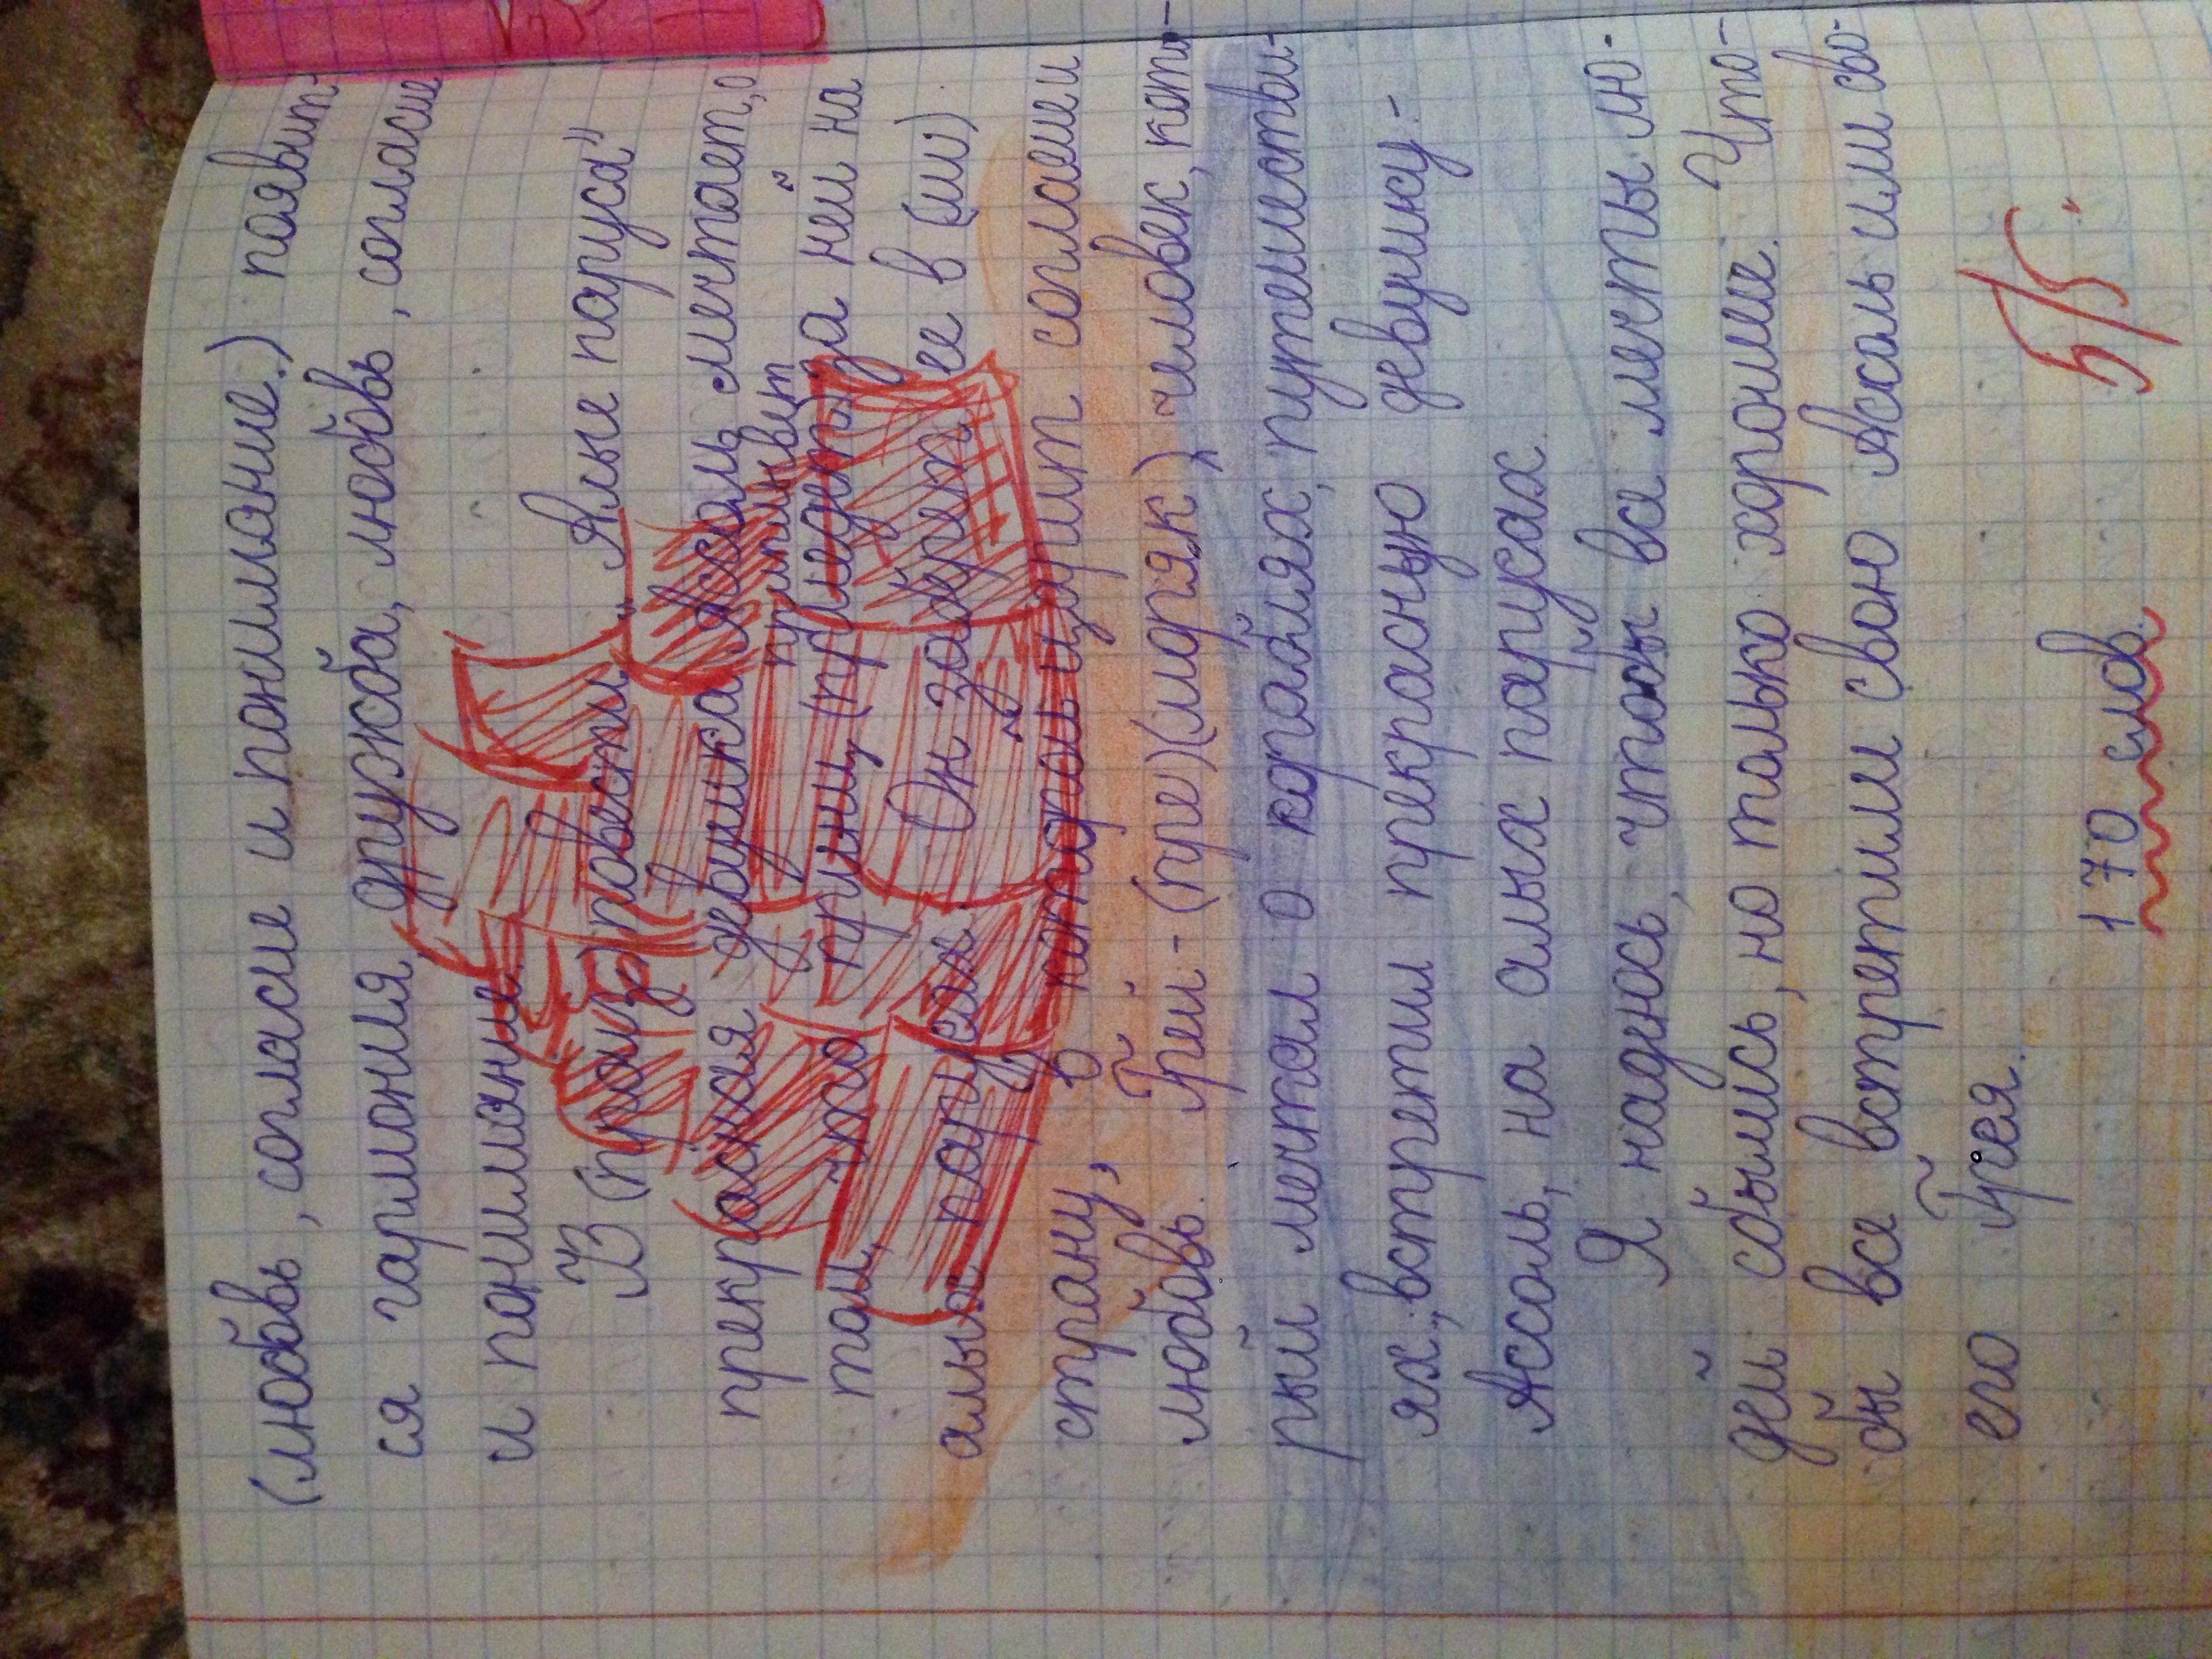 (любовь, согласие и понимание.) появит-
ся гармония, дружба, любовь, согласие
и понимание.
В (произ) повести „Алые паруса"
прекрасная девушка Ассоль мечтает, о
приплывёт
том, что принц (приедет) за ней на
алых парусах. Он заберет ее в (ши)
страну, в которой царит соглаеии
любовь. Грей - (гре) (моряк) человек, кото-
рый мечтал о кораблях, путешестви-
ях, встретил прекрасную девушку -
Ассоль, на алых парусах.
Я надюсь, чтобы все мечты лю-
дей сбылись, но только хорошие. Что-
бы все встретили свою Ассоль или сво-
его Грея.
170 слов.
5/5.